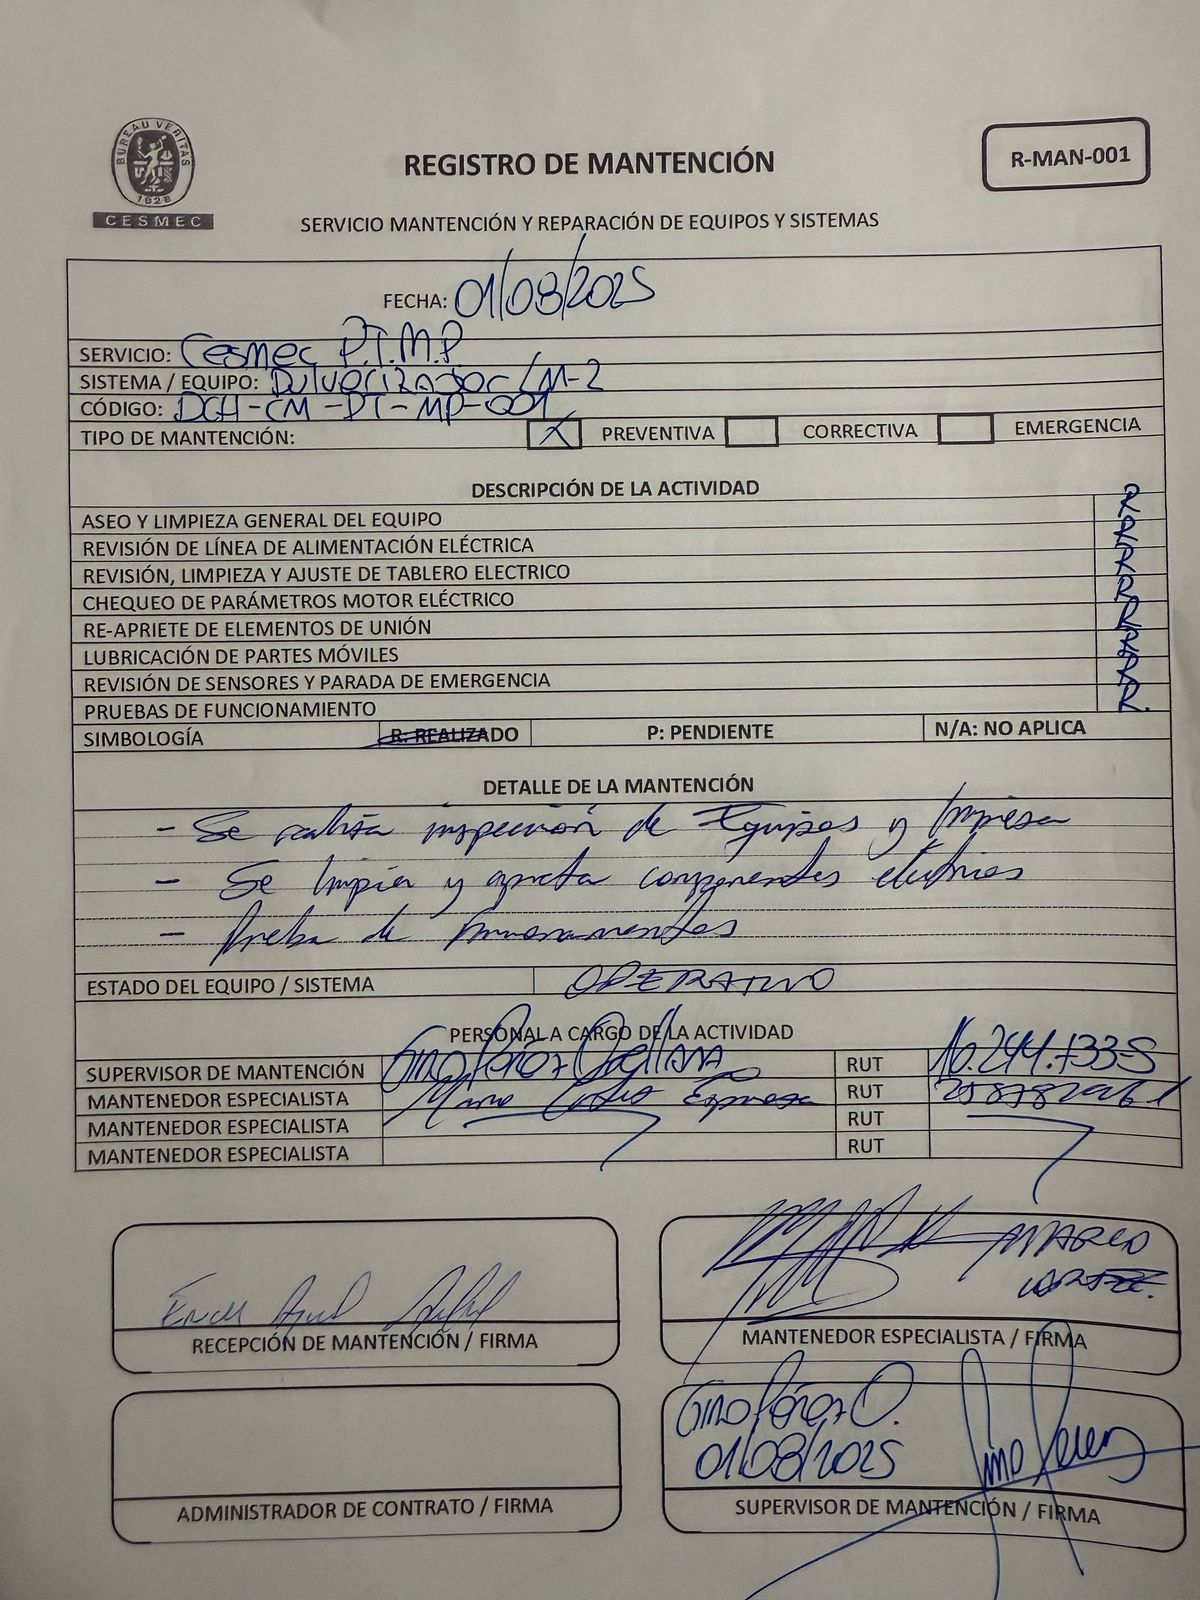 BUREAU VERITAS
1828
CESMEC
REGISTRO DE MANTENCIÓN
R-MAN-001
SERVICIO MANTENCIÓN Y REPARACIÓN DE EQUIPOS Y SISTEMAS
FECHA: 01/08/2025
SERVICIO: Cesmec P.T.M.P
SISTEMA / EQUIPO: Pulverizador LM-2
CÓDIGO: DCH-CM-PT-MP-001
TIPO DE MANTENCIÓN: X PREVENTIVA CORRECTIVA EMERGENCIA
DESCRIPCIÓN DE LA ACTIVIDAD
ASEO Y LIMPIEZA GENERAL DEL EQUIPO R
REVISIÓN DE LÍNEA DE ALIMENTACIÓN ELÉCTRICA R
REVISIÓN, LIMPIEZA Y AJUSTE DE TABLERO ELECTRICO R
CHEQUEO DE PARÁMETROS MOTOR ELÉCTRICO R
RE-APRIETE DE ELEMENTOS DE UNIÓN R
LUBRICACIÓN DE PARTES MÓVILES R
REVISIÓN DE SENSORES Y PARADA DE EMERGENCIA R
PRUEBAS DE FUNCIONAMIENTO R.
SIMBOLOGÍA R: REALIZADO P: PENDIENTE N/A: NO APLICA
DETALLE DE LA MANTENCIÓN
- Se realiza inspección de Equipos y limpiesa
- Se limpia y aprieta componentes eléctricos
- Prueba de funcionamientos
ESTADO DEL EQUIPO / SISTEMA OPERATIVO
PERSONAL A CARGO DE LA ACTIVIDAD
SUPERVISOR DE MANTENCIÓN Gino Pérez Orellana RUT 16.244.733-5
MANTENEDOR ESPECIALISTA RUT
MANTENEDOR ESPECIALISTA RUT
MANTENEDOR ESPECIALISTA RUT
RECEPCIÓN DE MANTENCIÓN / FIRMA
MARCO
MANTENEDOR ESPECIALISTA / FIRMA
ADMINISTRADOR DE CONTRATO / FIRMA
Gino Pérez O.
01/08/2025
Gino Perez
SUPERVISOR DE MANTENCIÓN / FIRMA